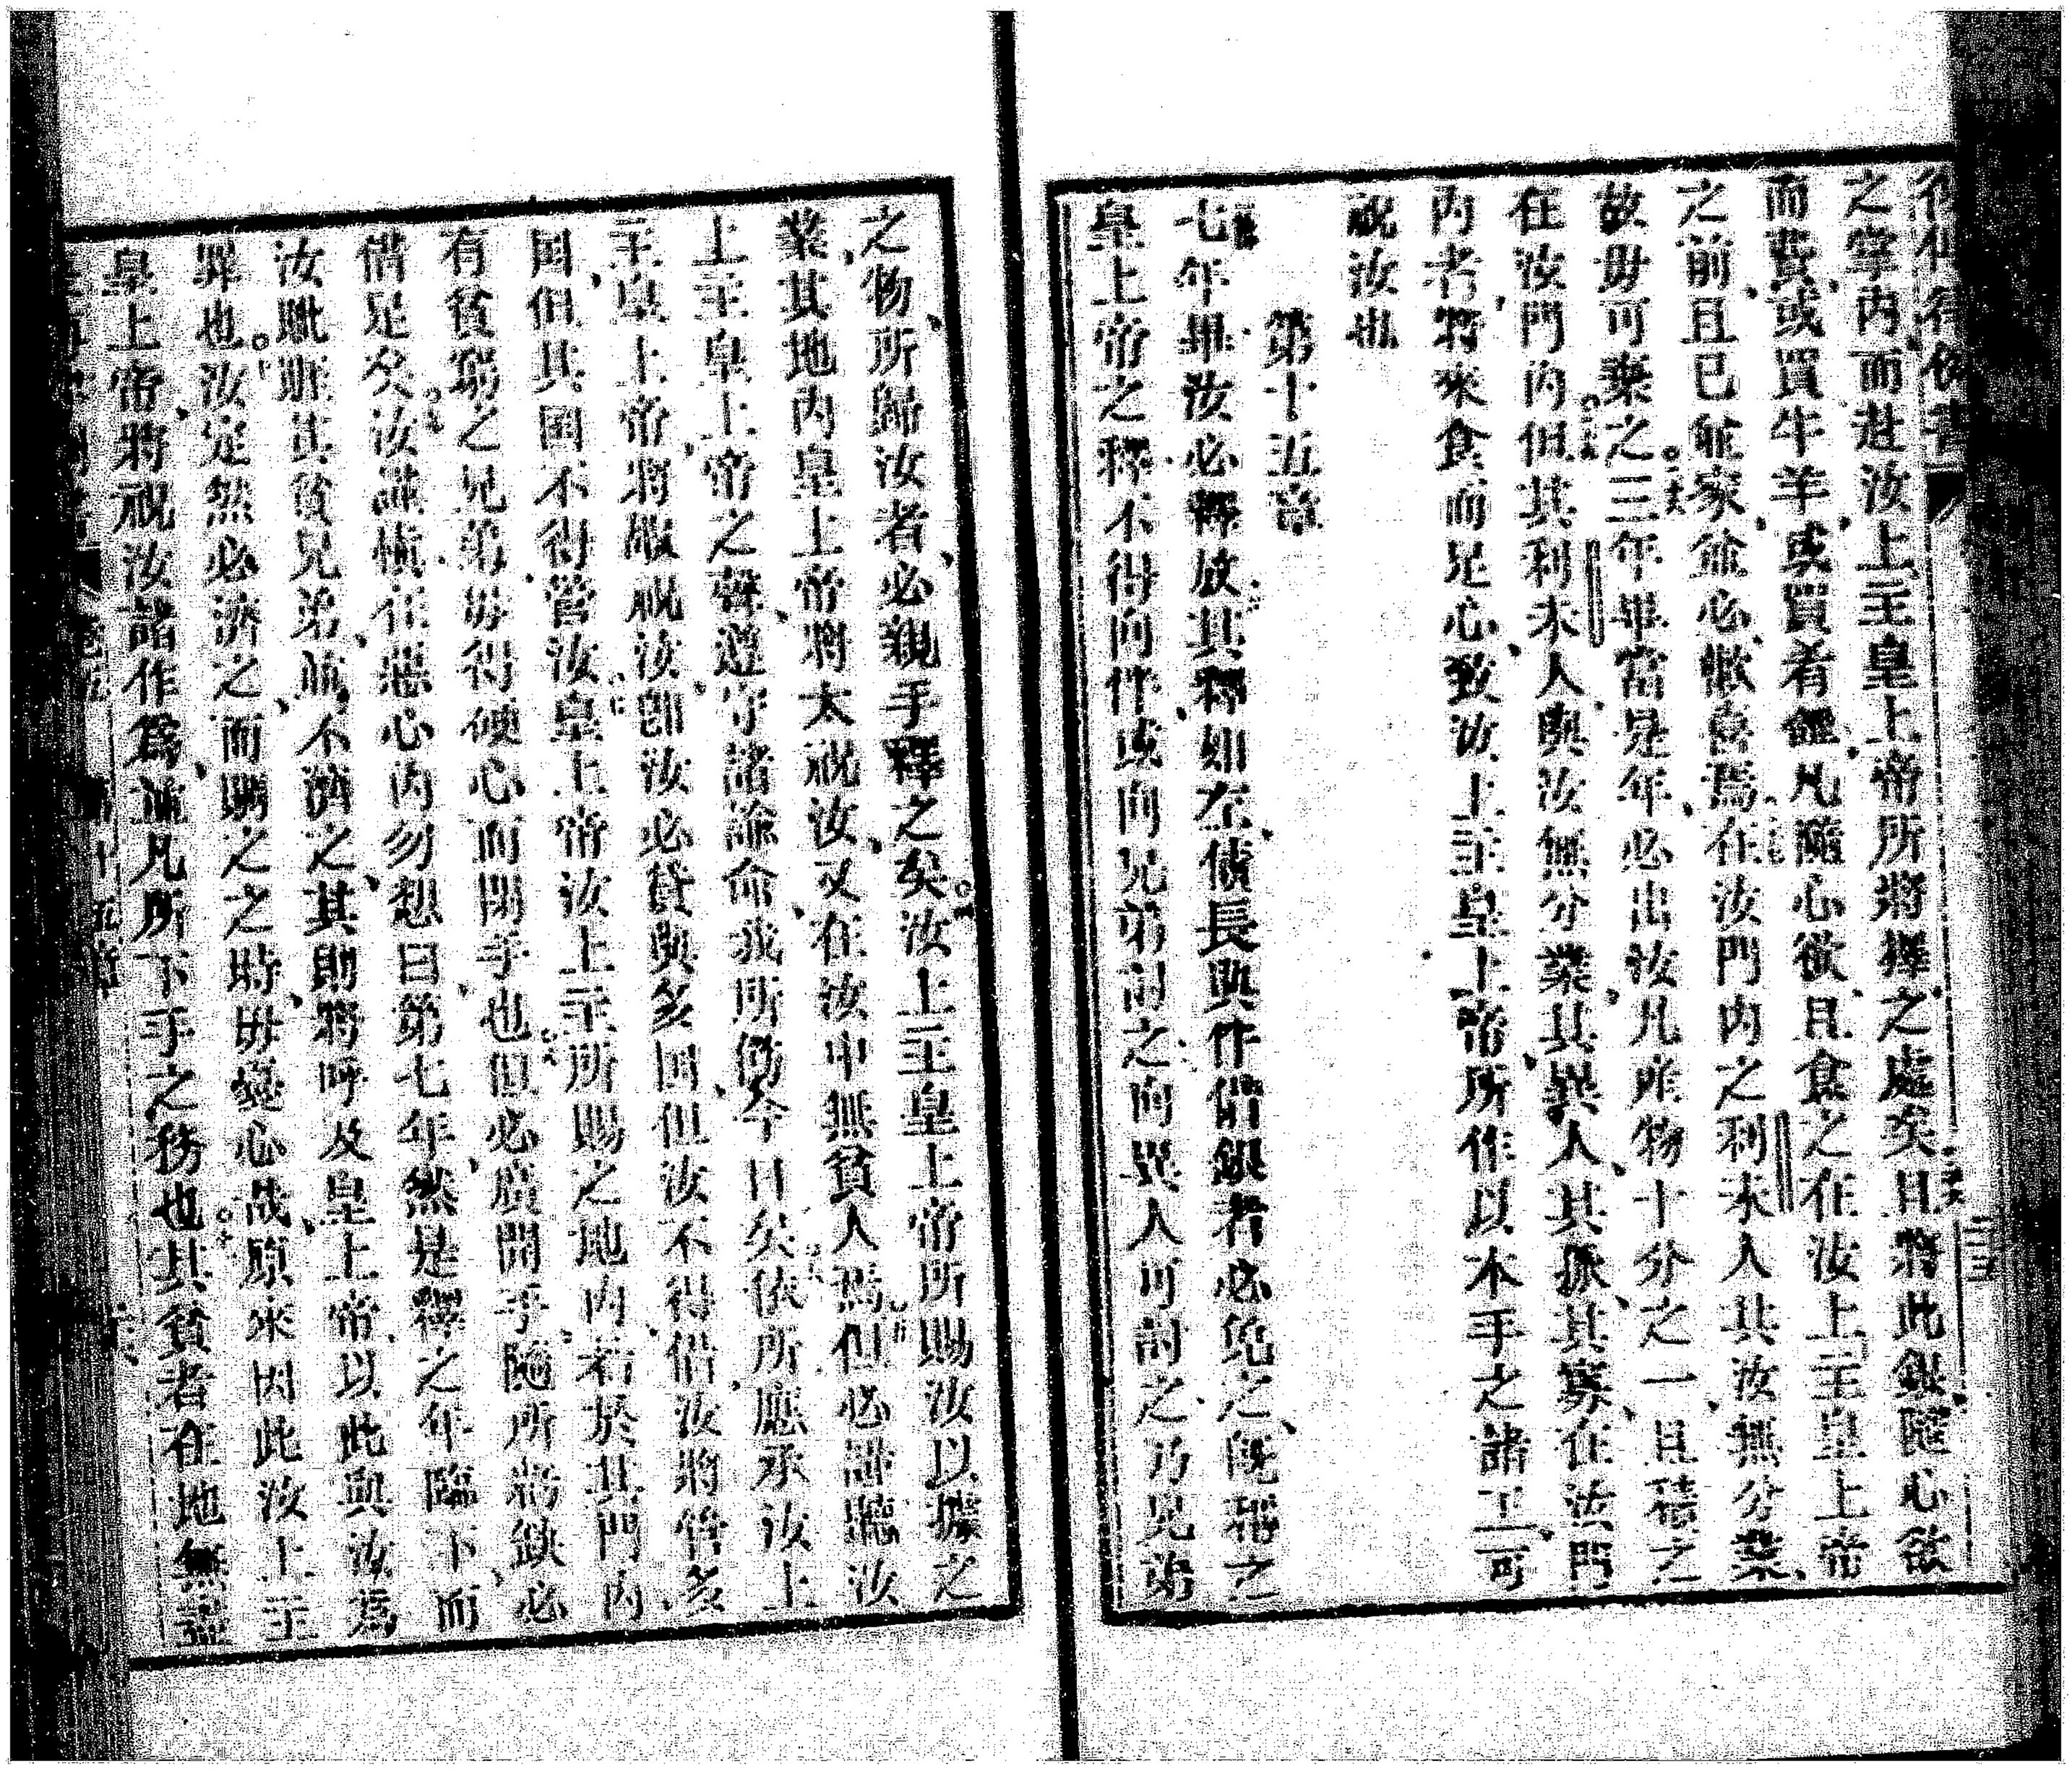 之宰內而赴汝上主皇上帝所將擇之處矣且將此銀隨心欲
而費或買牛羊或買肴饌凡隨心欲且食之在汝上主皇上帝
之前且已並家僉必懽喜焉在汝門內之利未人其汝無分業
故毋可棄之三年畢當是年必出汝凡產物十分之一且積之
在汝門內但其利未人與汝無分業其異人其孤其寡在汝門
內者將來食而足心致汝上主皇上帝所作以本手之諸工可
祝汝也
第十五章
七年畢汝必釋放其釋如左債長與伴借銀者必免之既稱之
皇上帝之釋不得向伴或向兄弟討之向異人可討之乃兄弟
之物所歸汝者必親手釋之矣汝上主皇上帝所賜汝以據之
業其地內皇上帝將太祝汝又在汝中無貧人焉但必謹聽汝
上主皇上帝之聲遵守諸諭命我所飭今日矣依所應承汝上
主皇上帝將厰祝汝卽汝必貸與多國但汝不得借汝將管多
國但其國不得管汝皇上帝汝上主所賜之地內若於其門內
有貧窮之兄弟毋得硬心而閉手也但必廣開手隨所虧缺必
借足矣汝謹慎在惡心內勿想曰第七年然是釋之年臨下而
汝眦睚其貧兄弟而不濟之其則將呼及皇上帝以此與汝為
罪也汝定然必濟之而賙之之時毋憂心哉原來因此汝上主
皇上帝將祝汝諸作為並凡所下手之務也其貧者在地無盡